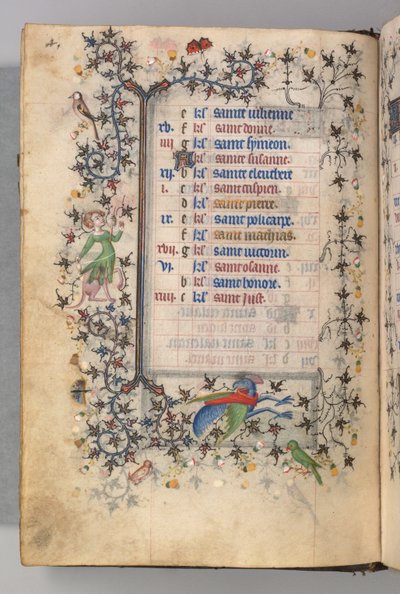 e kl' sainte iulienne
xv. f kl' saint donne.
iiii g kl' saint symeon.
A kl' sainte susanne.
xii. b kl' sainte eleuthere
i. c kl' saint
d kl' saint pierre.
ix. e kl' saint policarpe.
f kl' saint mathias.
xvii. g kl' saint victorin.
vi. kl' saint
b kl' saint honore.
xiiii c kl' saint just.